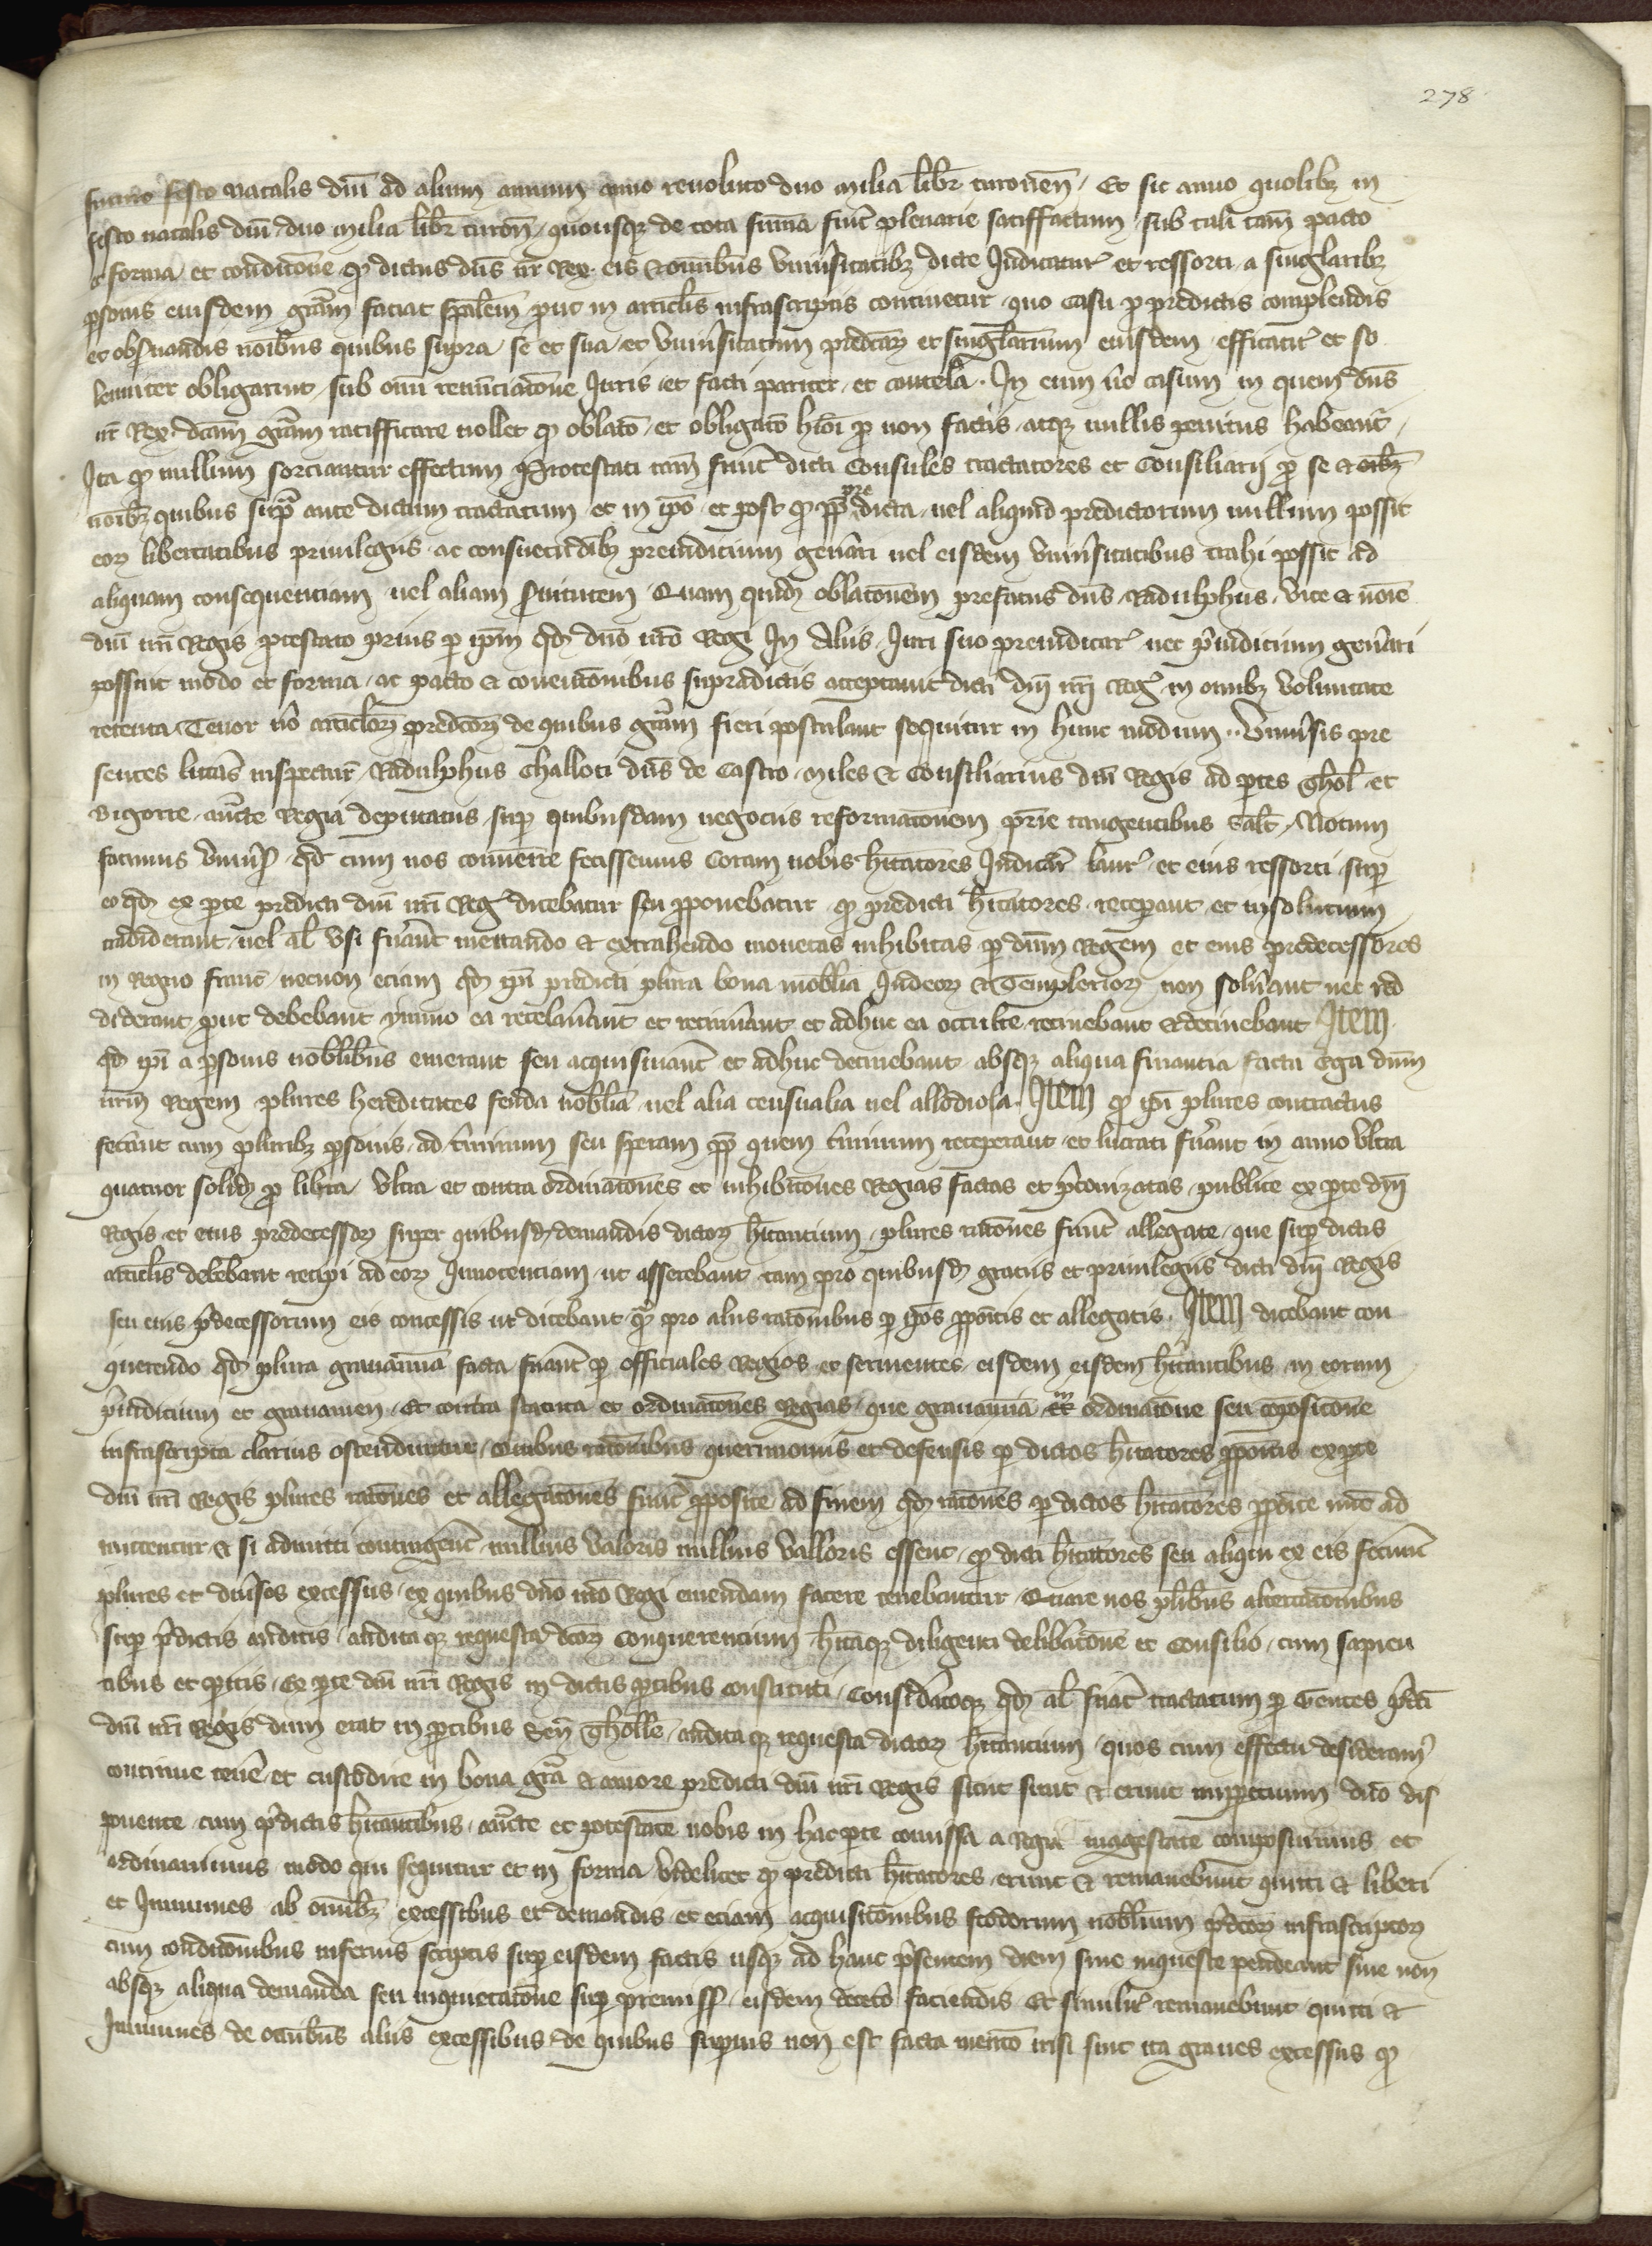 278
futuro festo natalis dni ad alium annum anno revoluto duo milia libr turonen / Et sic anno quolibz in
festo natalis dni duo milia libr turon / quousqz de tota suma fuit plenarie satisffactum / sub tali tam pacto
et forma et condicone qd dictus dns nr Rex eis & omnibus univsitatibz dicte Judicatur et ressorti a singlaribz
psonis eiusdem gram faciat spalem put in articlis infrascriptis continetur quo casu p predictis complendis
et obsvandis noibus quibus supra se et sua et univsitatum predcarz et singlarium eiusdem efficacit et so
lenniter obligarunt sub omi renunciacone Juris et facti pariter et cautela . In eum vo casum in quem dns
nr Rex dcam gram ratifficare nollet qd oblato et obligato hmoi p non factis atqz nullis penitus habeant
Ita qd nullum sorciantur effectum Protestati tam fuit dicti Consules tractatores et Consiliarij p se & oibz
noibz quibus supra ante dictum tractatum et in ipo et post qd pp pre dicta vel aliquid predictorum nullum possit
eorz libertatibus privilegiis ac consuetudibz preiudicium genari vel eisdem univsitatibus trahi possit ad
aliquam consequenciam vel aliam svitutem Quam quidz oblaconem prefatus dns Radulphus vice & noie
dni nri Regis ptestato prius p ipm qdz dno nro Regi In Aliis Juri suo preiudicar nec piudicium genari
possint modo et forma ac pacto & convenconibus supradictis acceptavit dicti dni nri Reg in omibz voluntate
retenta Tenor vo articlorz predcorz de quibus gram fieri postulant sequitur in hunc modum .. Univsis pre
sentes littas inspectur Radulphus Challoti dns de Castro miles & Consiliarius dni Regis ad ptes Thol et
Bigorre aucte Regia deputatus sup quibusdam negociis reformaconem prie tangentibus Salt Notum
facimus univs qd cum nos convenire fecissemus coram nobis hitatores Judicar laur et eius ressorti sup
eo qdz ex pte predicti dni nri Reg dicebatur seu pponebatur qd predicti hitatores receperant et insolutum
tradiderant vel al usi fuant mettando & extrahendo monetas inhibitas p dnm Regem et eius predecessores
in Regno franc necnon eciam qdz ipi predicti plura bona mobilia Judeorz & Templeriorz non solvant nec red
diderant put debebant ymmo ea recelavant et retinvant et adhuc ea occulte retinebant & detinebant Item
qdz ipi a psonis nobilibus emerant seu acquisivant et adhuc detinebant absqz aliqua financia facta Erga dnm
nrm Regem plures hereditates feuda nobilia vel alia censualia vel allodiola . Item qd ipi plures contractus
fecant cum pluribz psonis ad tminum seu speram pp quem tminum receperant et lucrati fuant in anno ultra
quatuor solidz p libra ultra et contra ordinacones et inhibicones Regias factas et pconizatas publice ex pte dni
Regis et eius predecessorz super quibusdz demandis dictorz hitancium plures racones fuit allegate que sup dictis
articlis debebant recipi ad eorz Innocenciam ut asserebant tam pro quibusdz graciis et privilegiis dicti dni Regis
seu eius pdecessorum eis concessis ut dicebant qz pro aliis raconibus p ipos ppoitis et allegatis . Item dicebant con
querendo qdz plura gravamina facta fuant p officiales Regios et servientes eisdem eisdem hitantibus in eorum
piudicium et gravamen Et contra statuta et ordinacones Regias que gravamina in ordinacone seu composicone
infrascripta clarius ostenduntur omibus raconibus querimoniis et defensis p dictos hitatores ppoitis ex pte
dni nri Regis plures racones et allegacones fuit pposite ad finem qdz racones p dictos hitatores ppoite mie ad
mittentur & si admitti contingent nullius valoris nullius valloris essent qd dicti hitatores seu aliqui ex eis fecant
plures et divsos excessus ex quibus dno nro Regi emendam facere tenebantur Quare nos plibus altercaconibus
sup pdictis auditis audita qz requesta dcorz Conquerencium hitaqz diligenti delibacone et Consilio cum sapien
tibus et pitis Ex pte dni nri Regis in dictis ptibus constituti Considatoqz qdz al fuat tractatum p Gentes pdci
dni nri Regis dum erat in ptibus Sen Tholle audita qz requesta dictorz hitancium quos cum effectu desideram
continue tene et custodire in bona gra & amore predicti dni nri Regis sicut sunt & erunt inppetuum dno dis
ponente cum pdictis hitantibus aucte et potestate nobis in hac pte comissa a Regia magestate composuimus et
ordinavimus modo qui sequitur et in forma videlicet qd predicti hitatores erunt & remanebunt quitti & liberi
et Immunes ab omibz excessibus et demandis et eciam acquisiconibus feodorum nobilium pdcorz infrascriptorz
cum condiconibus inferius scriptis sup eisdem factis usqz ad hanc psentem diem sive inqueste pendeant sive non
absqz aliqua demanda seu inquietacone sup premiss eisdem deceto faciendis Et similit remanebunt quitti &
Immunes de omibus aliis excessibus de quibus supius non est facta mentio nisi sint ita graves excessus qd